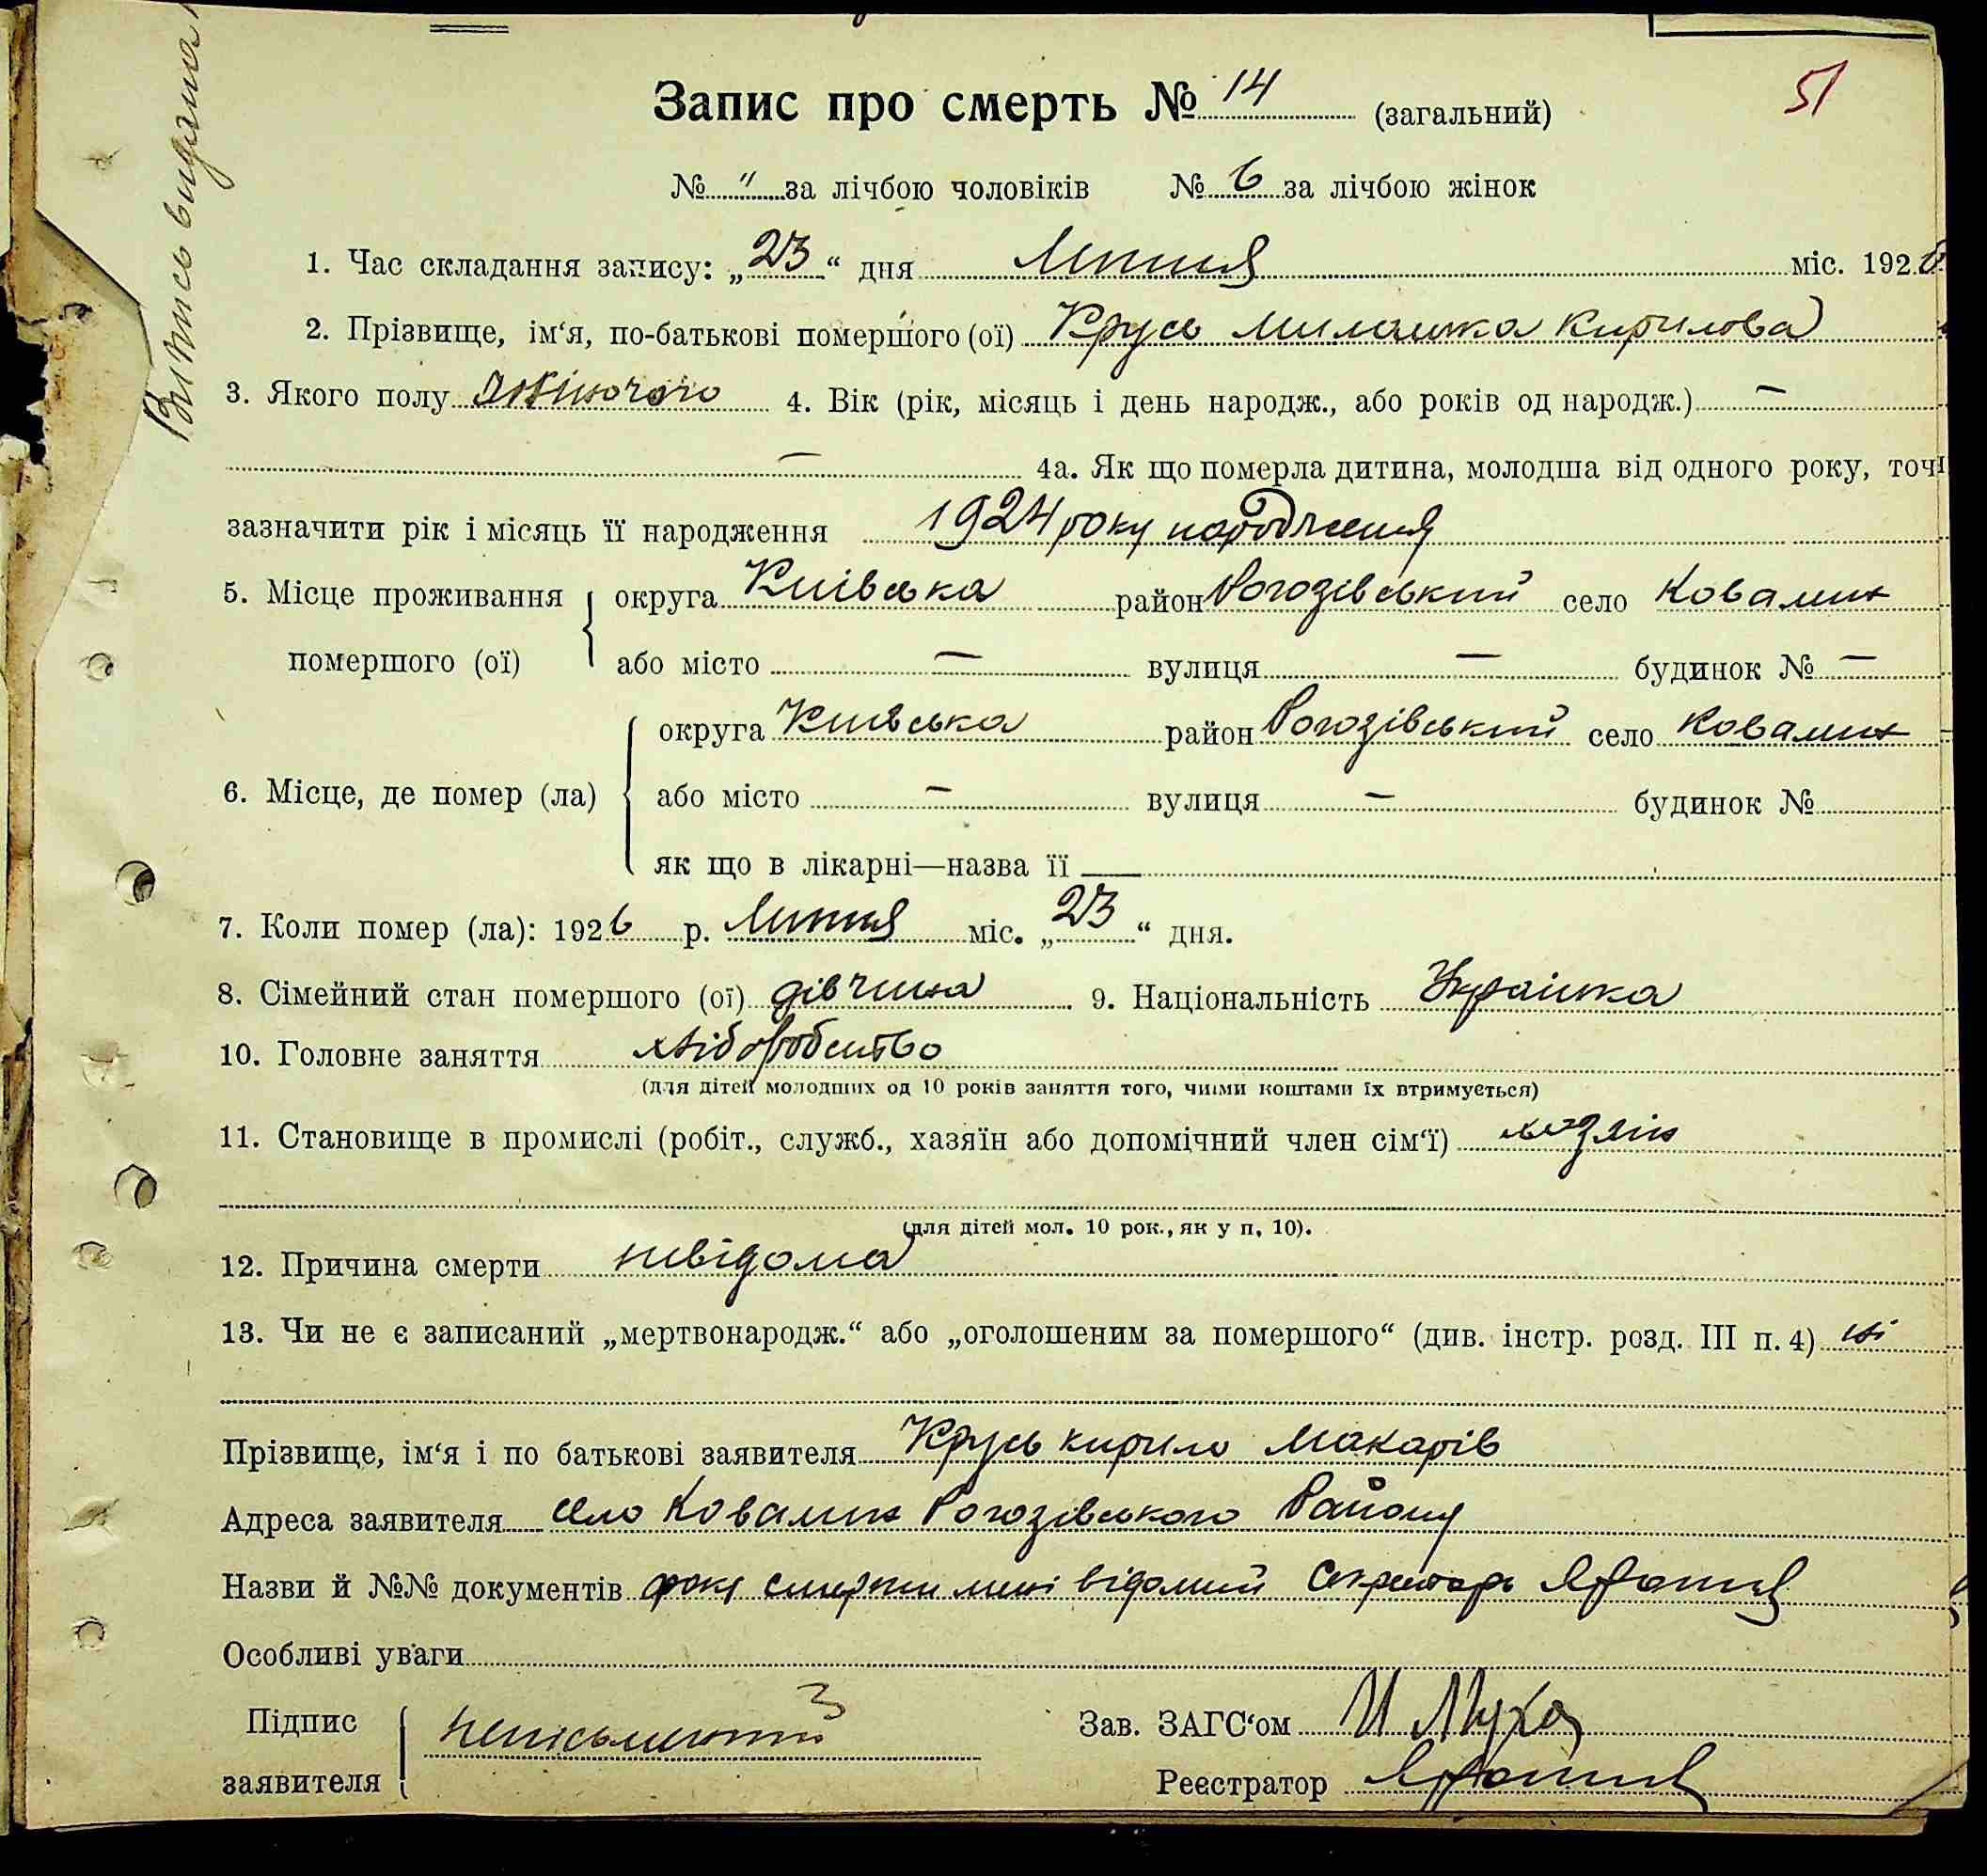 Випись видана
51
Запис про смерть № 14 (загальний)
№ " за лічбою чоловіків № 6 за лічбою жінок
1. Час складання запису: „23“ дня Липня міс. 1926
2. Прізвище, ім‘я, по-батькові помершого (ої) Крусь Милашка Кирилова
3. Якого полу жіночого 4. Вік (рік, місяць і день народж., або років од народж.) —
— 4а. Як що померла дитина, молодша від одного року, точн
зазначити рік і місяць її народження 1924 року народження
5. Місце проживання округа Київська район Рогозівський село Ковалин
помершого (ої) або місто — вулиця — будинок № —
округа Київська район Рогозівський село Ковалин
6. Місце, де помер (ла) або місто — вулиця — будинок №
як що в лікарні—назва її —
7. Коли помер (ла): 1926 р. Липня міс. „23“ дня.
8. Сімейний стан помершого (ої) дівчина 9. Національність Українка
10. Головне заняття хліборобство
(для дітей молодших од 10 років заняття того, чиїми коштами їх втримується)
11. Становище в промислі (робіт., служб., хазяїн або допомічний член сім‘ї) хазяїн
(для дітей мол. 10 рок., як у п. 10).
12. Причина смерти невідома
13. Чи не є записаний „мертвонародж.“ або „оголошеним за помершого“ (див. інстр. розд. III п. 4) ні
Прізвище, ім‘я і по батькові заявителя Крусь Кирило Макарів
Адреса заявителя село Ковалин Рогозівського Району
Назви й №№ документів факт смерти мені відомий Секретарь
Особливі уваги
Підпис неписьменний Зав. ЗАГС‘ом И Муха
заявителя Реєстратор